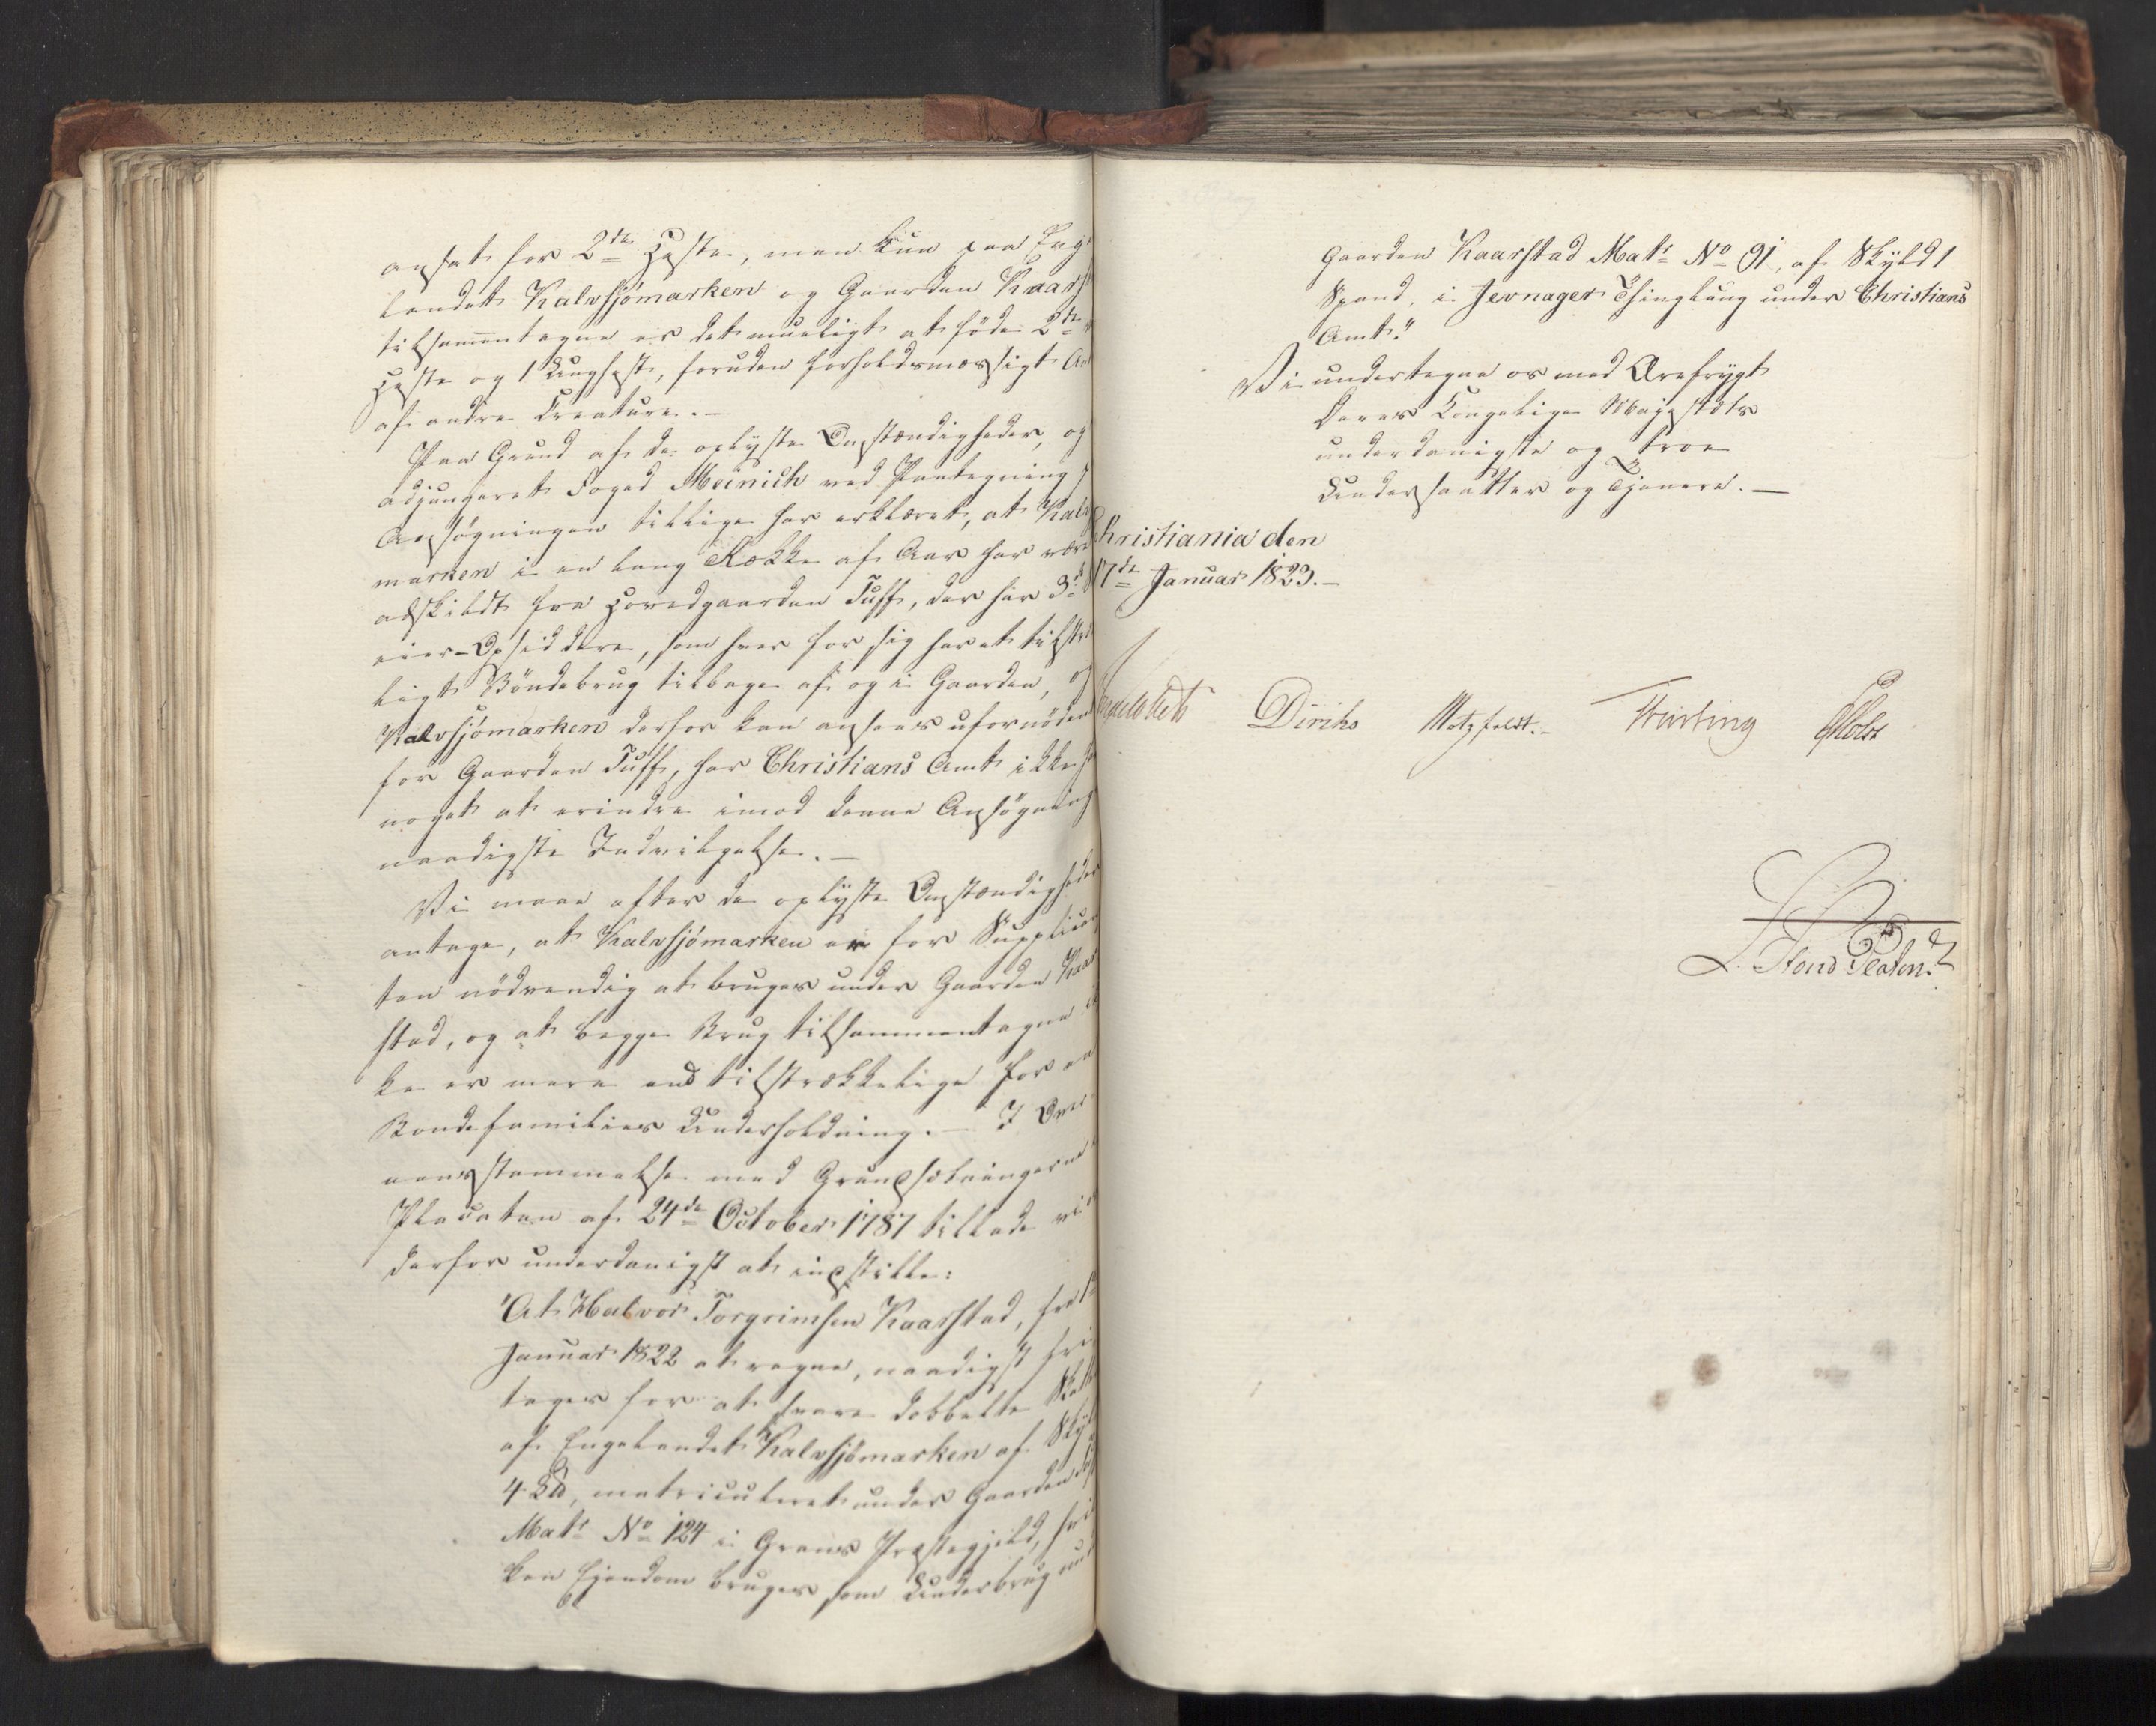 ansat for 2de Heste, men kun paa Eng
landet Kalvsjømarken og Gaarden Kaarst
tilsammentagne er det mueligt at føde 2de
Heste og 1 Unghest, foruden forholdsmæssigt An
af andre Creature.-
Paa Grund af de oplyste Omstændigheder, og
adjungeret Foged Meinich ved Paategning p
Ansøgningen tillige har erklæret, at Kalv
marken i en lang Række af Aar har være
adskildt fra Hovedgaarden Tuff, der har 3de
eier-Opsiddere, som hver for sig har et tilstræ
ligt Bøndebrug tilbage af og i Gaarden, og
Kalvsjømarken derfor kan ansees ufornøden
for Gaarden Tuff, har Christians Amt ikke h
noget at erindre imod denne Ansøgnings
naadigste Indvilgelse.-
Vi maae efter de oplyste Omstændigheder
antage, at Kalvsjømarken er for Supplican
ten nødvendig at bruges under Gaarden Kaar
stad, og at begge Brug tilsammentagne ik
ke er mere end tilstrækkelige for en
Bondefamilies Underholdning.- I Over-
eensstemmelse med Grundsætningerne i
Placaten af 24de October 1787 tillade vi o
derfor underdanigst at indstille:
"At Halvor Torgrimsen Kaarstad, fra 1
Januar 1822 at regne, naadigst fri
tages for at svare dobbelte Skatte
af Engelandet Kalvsjømarken af Skyl
4 L℔, matriculeret under Gaarden Tuff
Matr No 124 i Grans Præstegjeld, hvil
ken Eiendom bruges som Underbrug und
Gaarden Kaarstad Matr No 91, af Skyld 1
Spand, i Jevnager Thinglaug under Christians
Amt."
Vi undertegne os med Ærefrygt
Deres Kongelige Majestæts
underdanigste og troe
Undersaatter og Tjenere.-
Christiania den
17de Januar 1823.-
Diriks Motzfeldt.- Treschow Holst